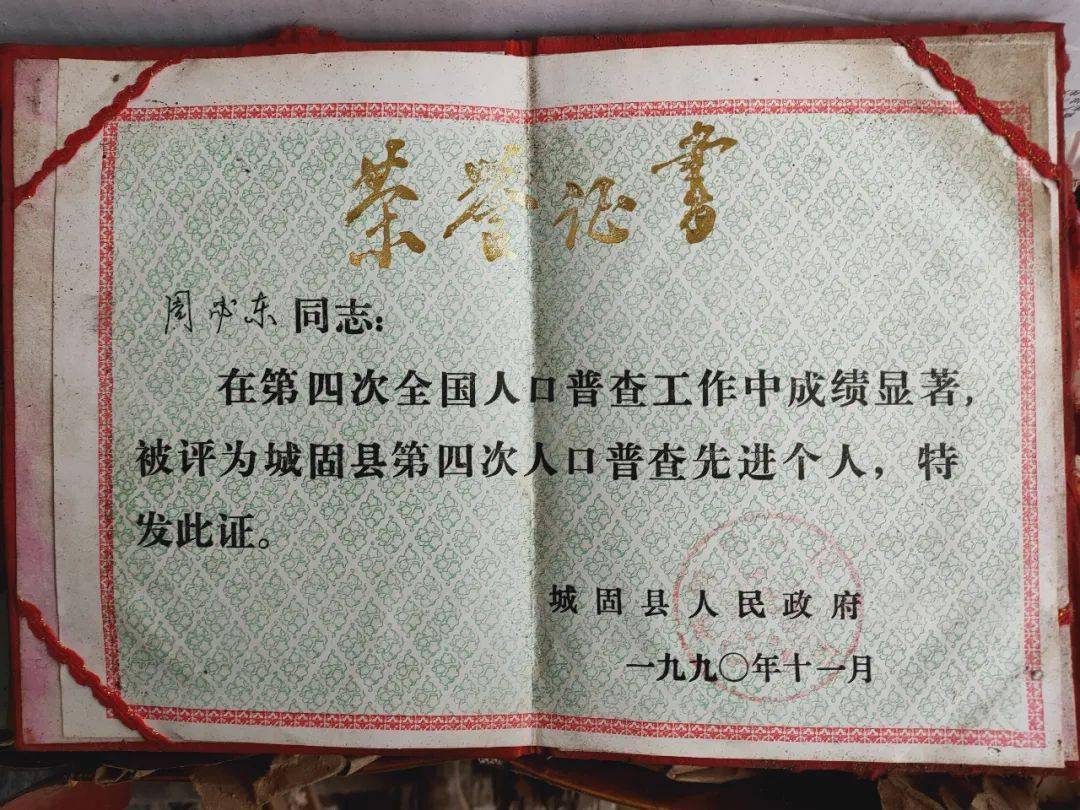 荣誉证书
周必东同志：
在第四次全国人口普查工作中成绩显著，
被评为城固县第四次人口普查先进个人，特
发此证。
城固县人民政府
一九九〇年十一月